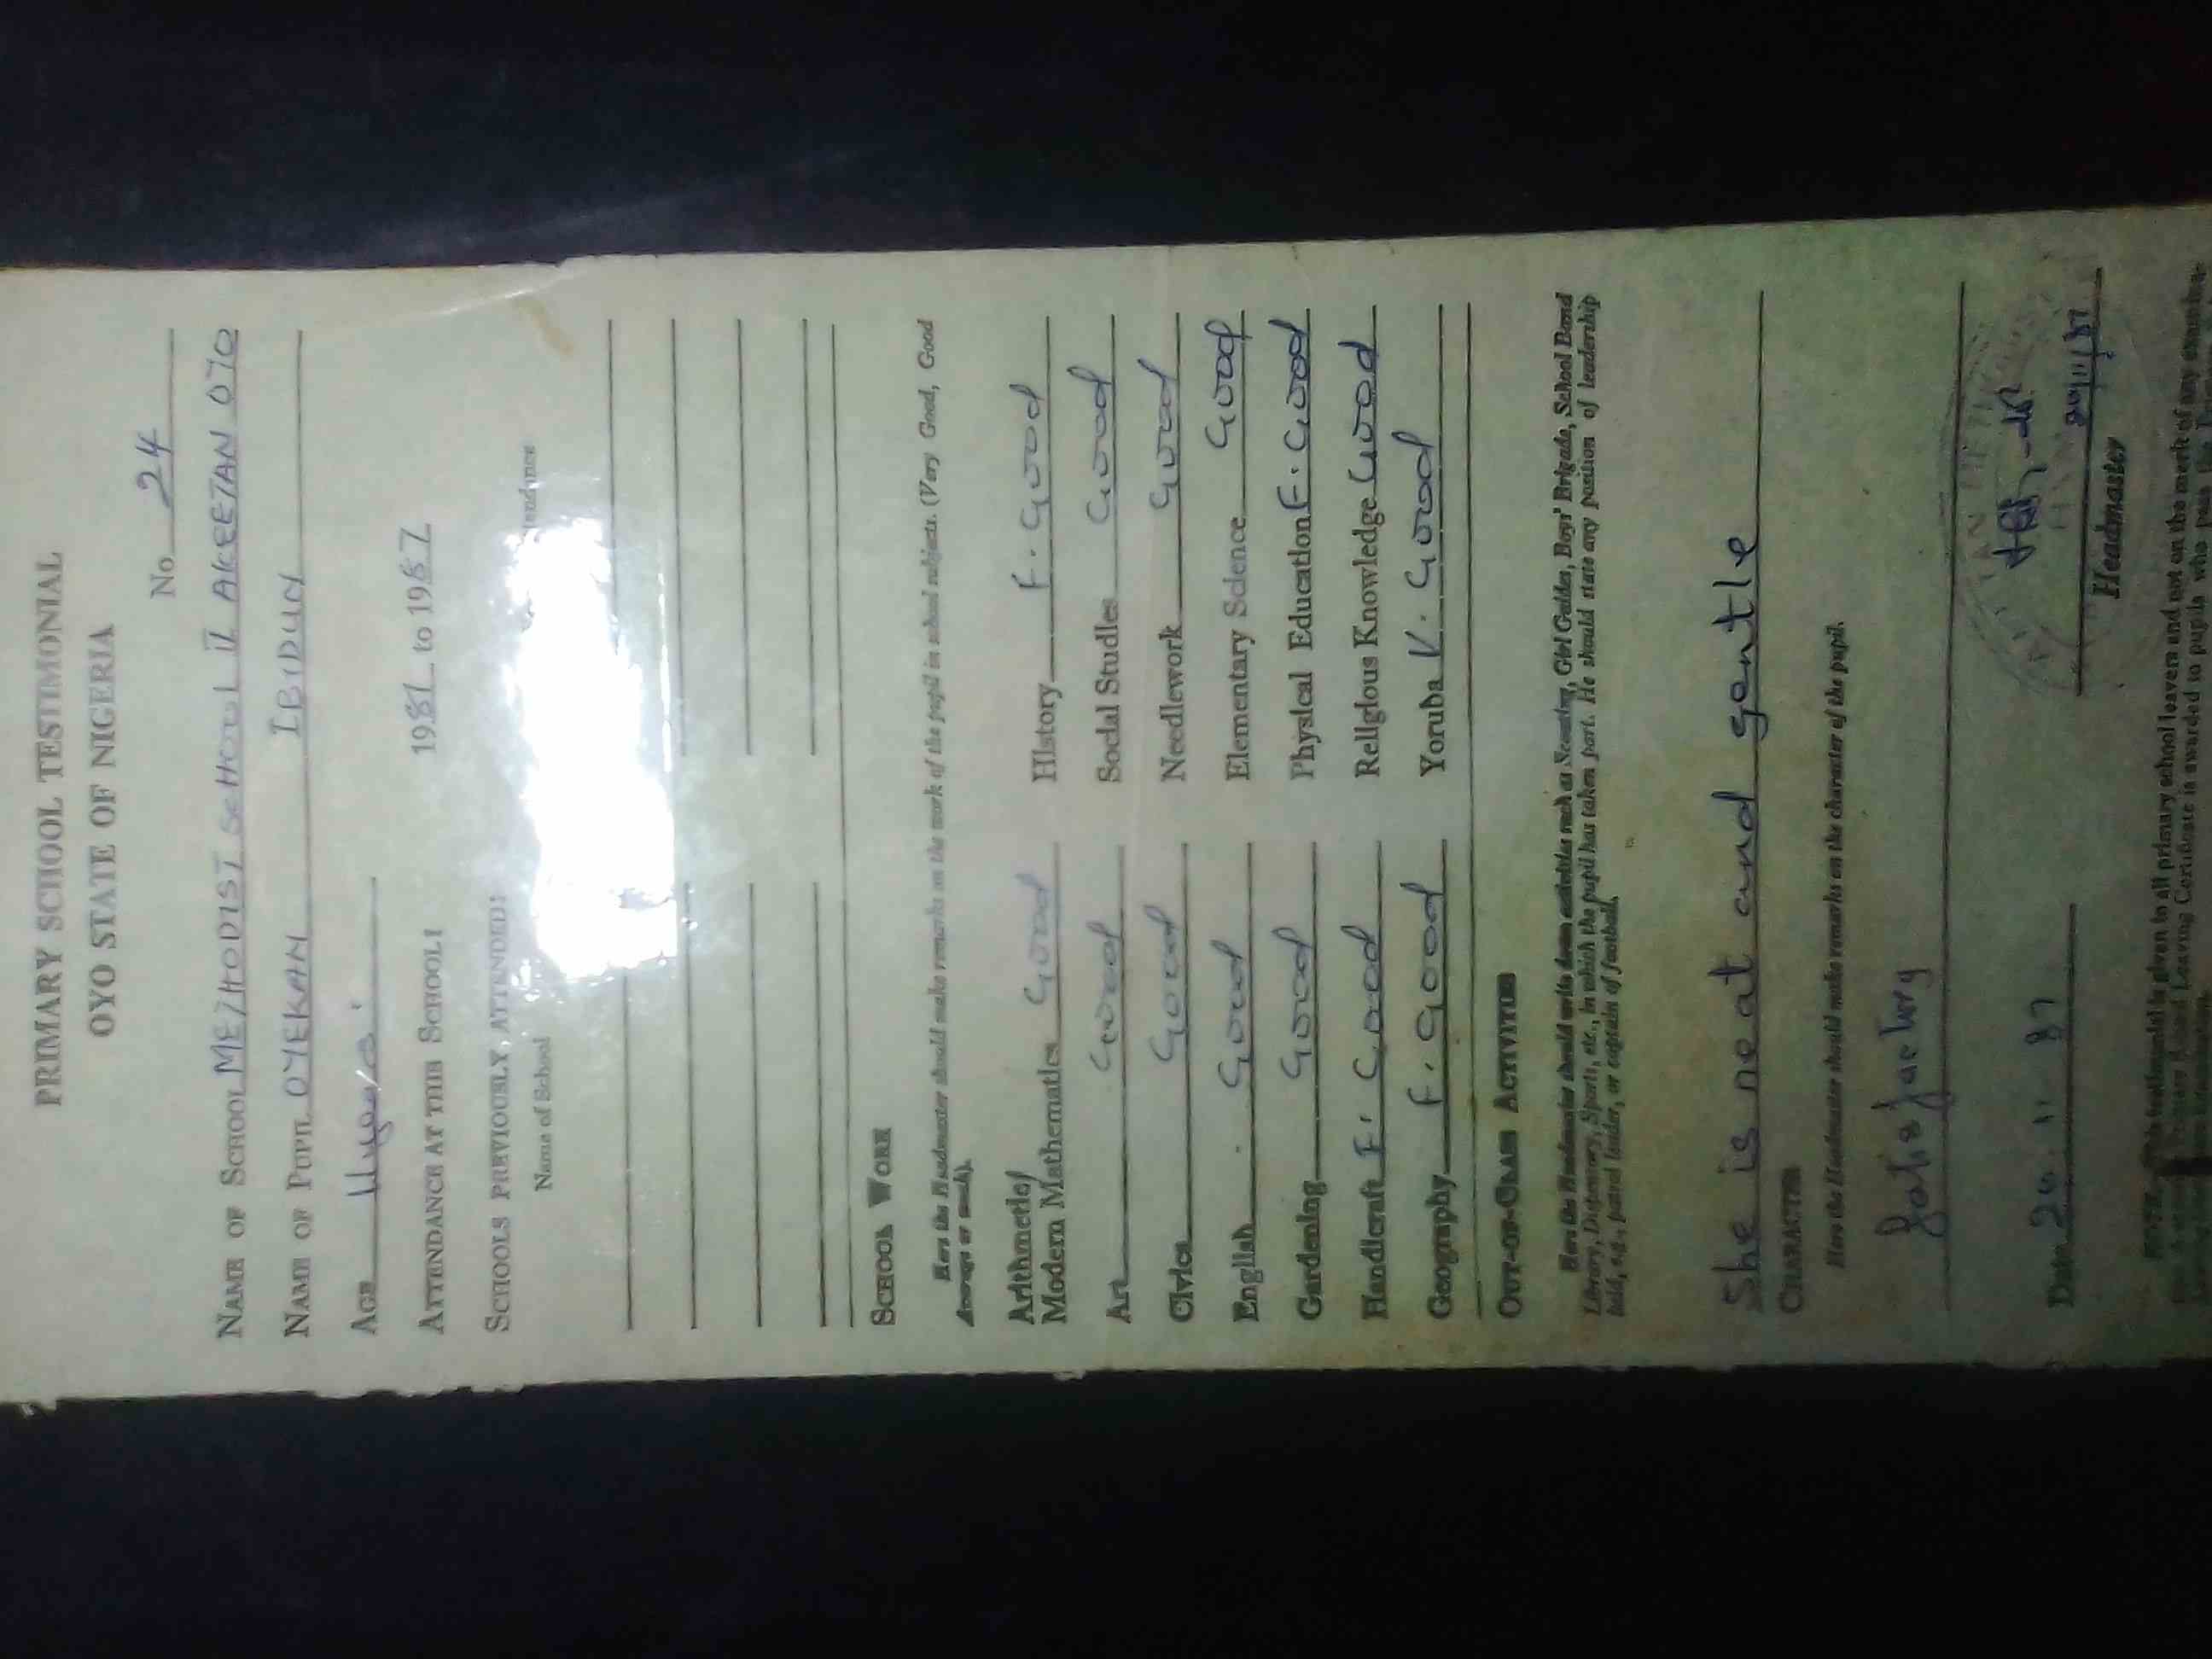 PRIMARY SCHOOL TESTIMONIAL
OYO STATE OF NIGERIA
No 24
NAME OF SCHOOL METHODIST SCHOOL II AKEETAN OYO
NAME OF PUPIL OYEKAN IBIDUN
AGE 11
ATTENDANCE AT THIS SCHOOL: 1981 to 1987
SCHOOLS PREVIOUSLY ATTENDED:
Name of School
SCHOOL WORK
Here the Headmaster should make remarks on the work of the pupil in school subjects. (Very Good, Good
Average or weak).
Arithmetic/
Modern Mathematics Good History F. Good
Art Good Social Studies Good
Civics Good Needlework Good
English Good Elementary Science Good
Gardening Good Physical Education F. Good
Handicraft F. Good Religious Knowledge Good
Geography F. Good Yoruba V. Good
OUT-OF-CLASS ACTIVITIES
Here the Headmaster should write down activities such as Scouting, Girl Guides, Boys' Brigade, School Band
Library, Dispensary, Sports, etc., in which the pupil has taken part. He should state any position of leadership
held, e.g., patrol leader, or captain of football.
She is neat and gentle
CHARACTER
Here the Headmaster should make remarks on the character of the pupil.
Satisfactory
Date 24.11.87
24/11/87
Headmaster
NOTE This testimonial is given to all primary school leavers and not on the merit of any
Leaving Certificate is awarded to pupils who pass the